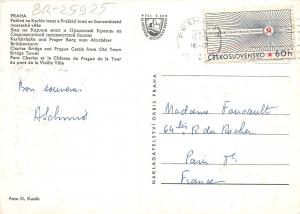 BR-25925
PRAHA
Pohled na Karlův most a Pražský hrad ze Staroměstské
mostecké věže
Вид на Карлов мост и Пражский Кремль из
Староместской предмостной башни
Karlsbrücke und Prager Burg vom Altstädter
Brückenturm
Charles Bridge and Prague Castle from Old Town
Bridge Tower
Pont Charles et le Château de Prague de la Tour
du pont de la Vieille Ville
ČESKOSLOVENSKO 60h
Bon souvenir
Madame Foucault
64 bis, R. du Rocher
Paris 8e
France
NAKLADATELSTVÍ ORBIS PRAHA
Foto D. Kusák